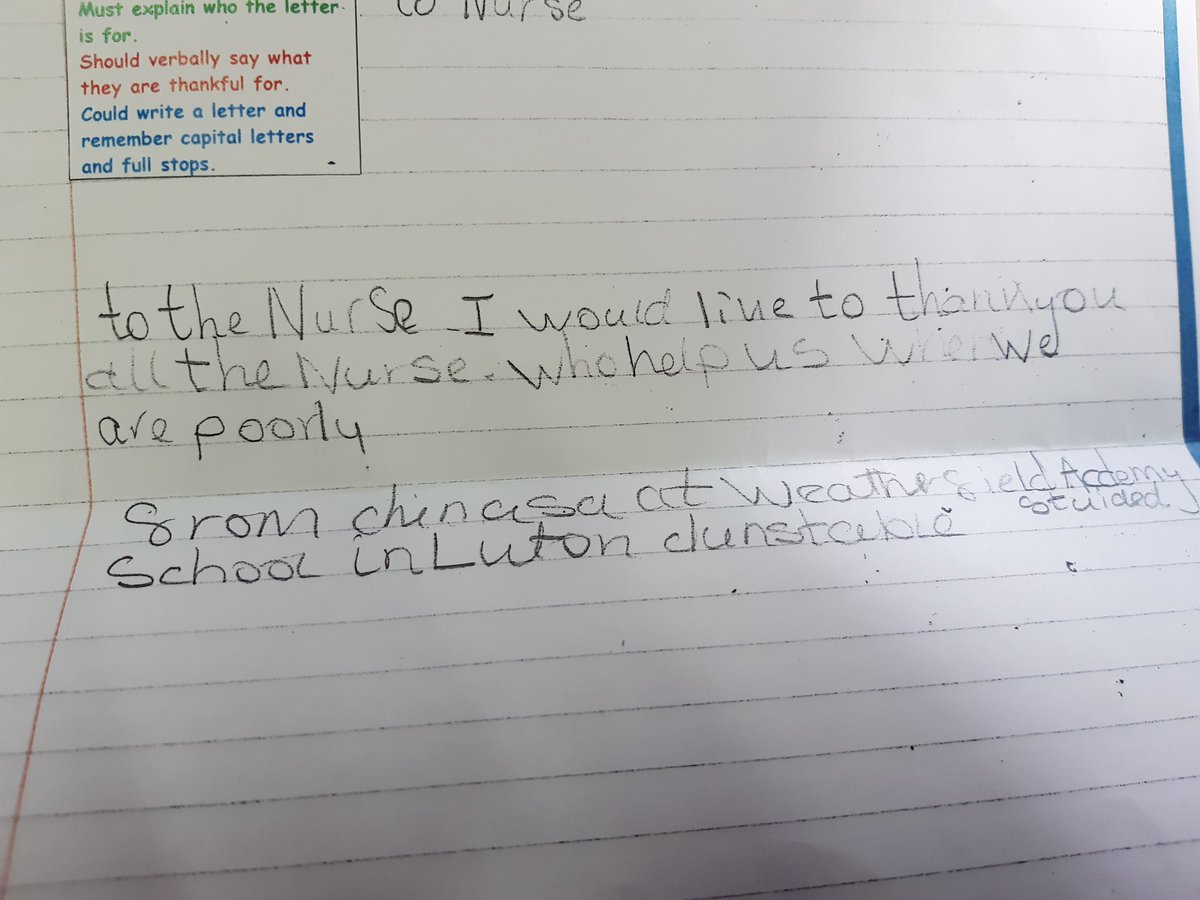 Must explain who the letter
is for.
Should verbally say what
they are thankful for.
Could write a letter and
remember capital letters
and full stops.
to Nurse
to the Nurse I would live to thannyou
all the Nurse. who help us when we
are poorly
from chinasa at Weathersield Acdemy
stuided
School in Luton dunstable